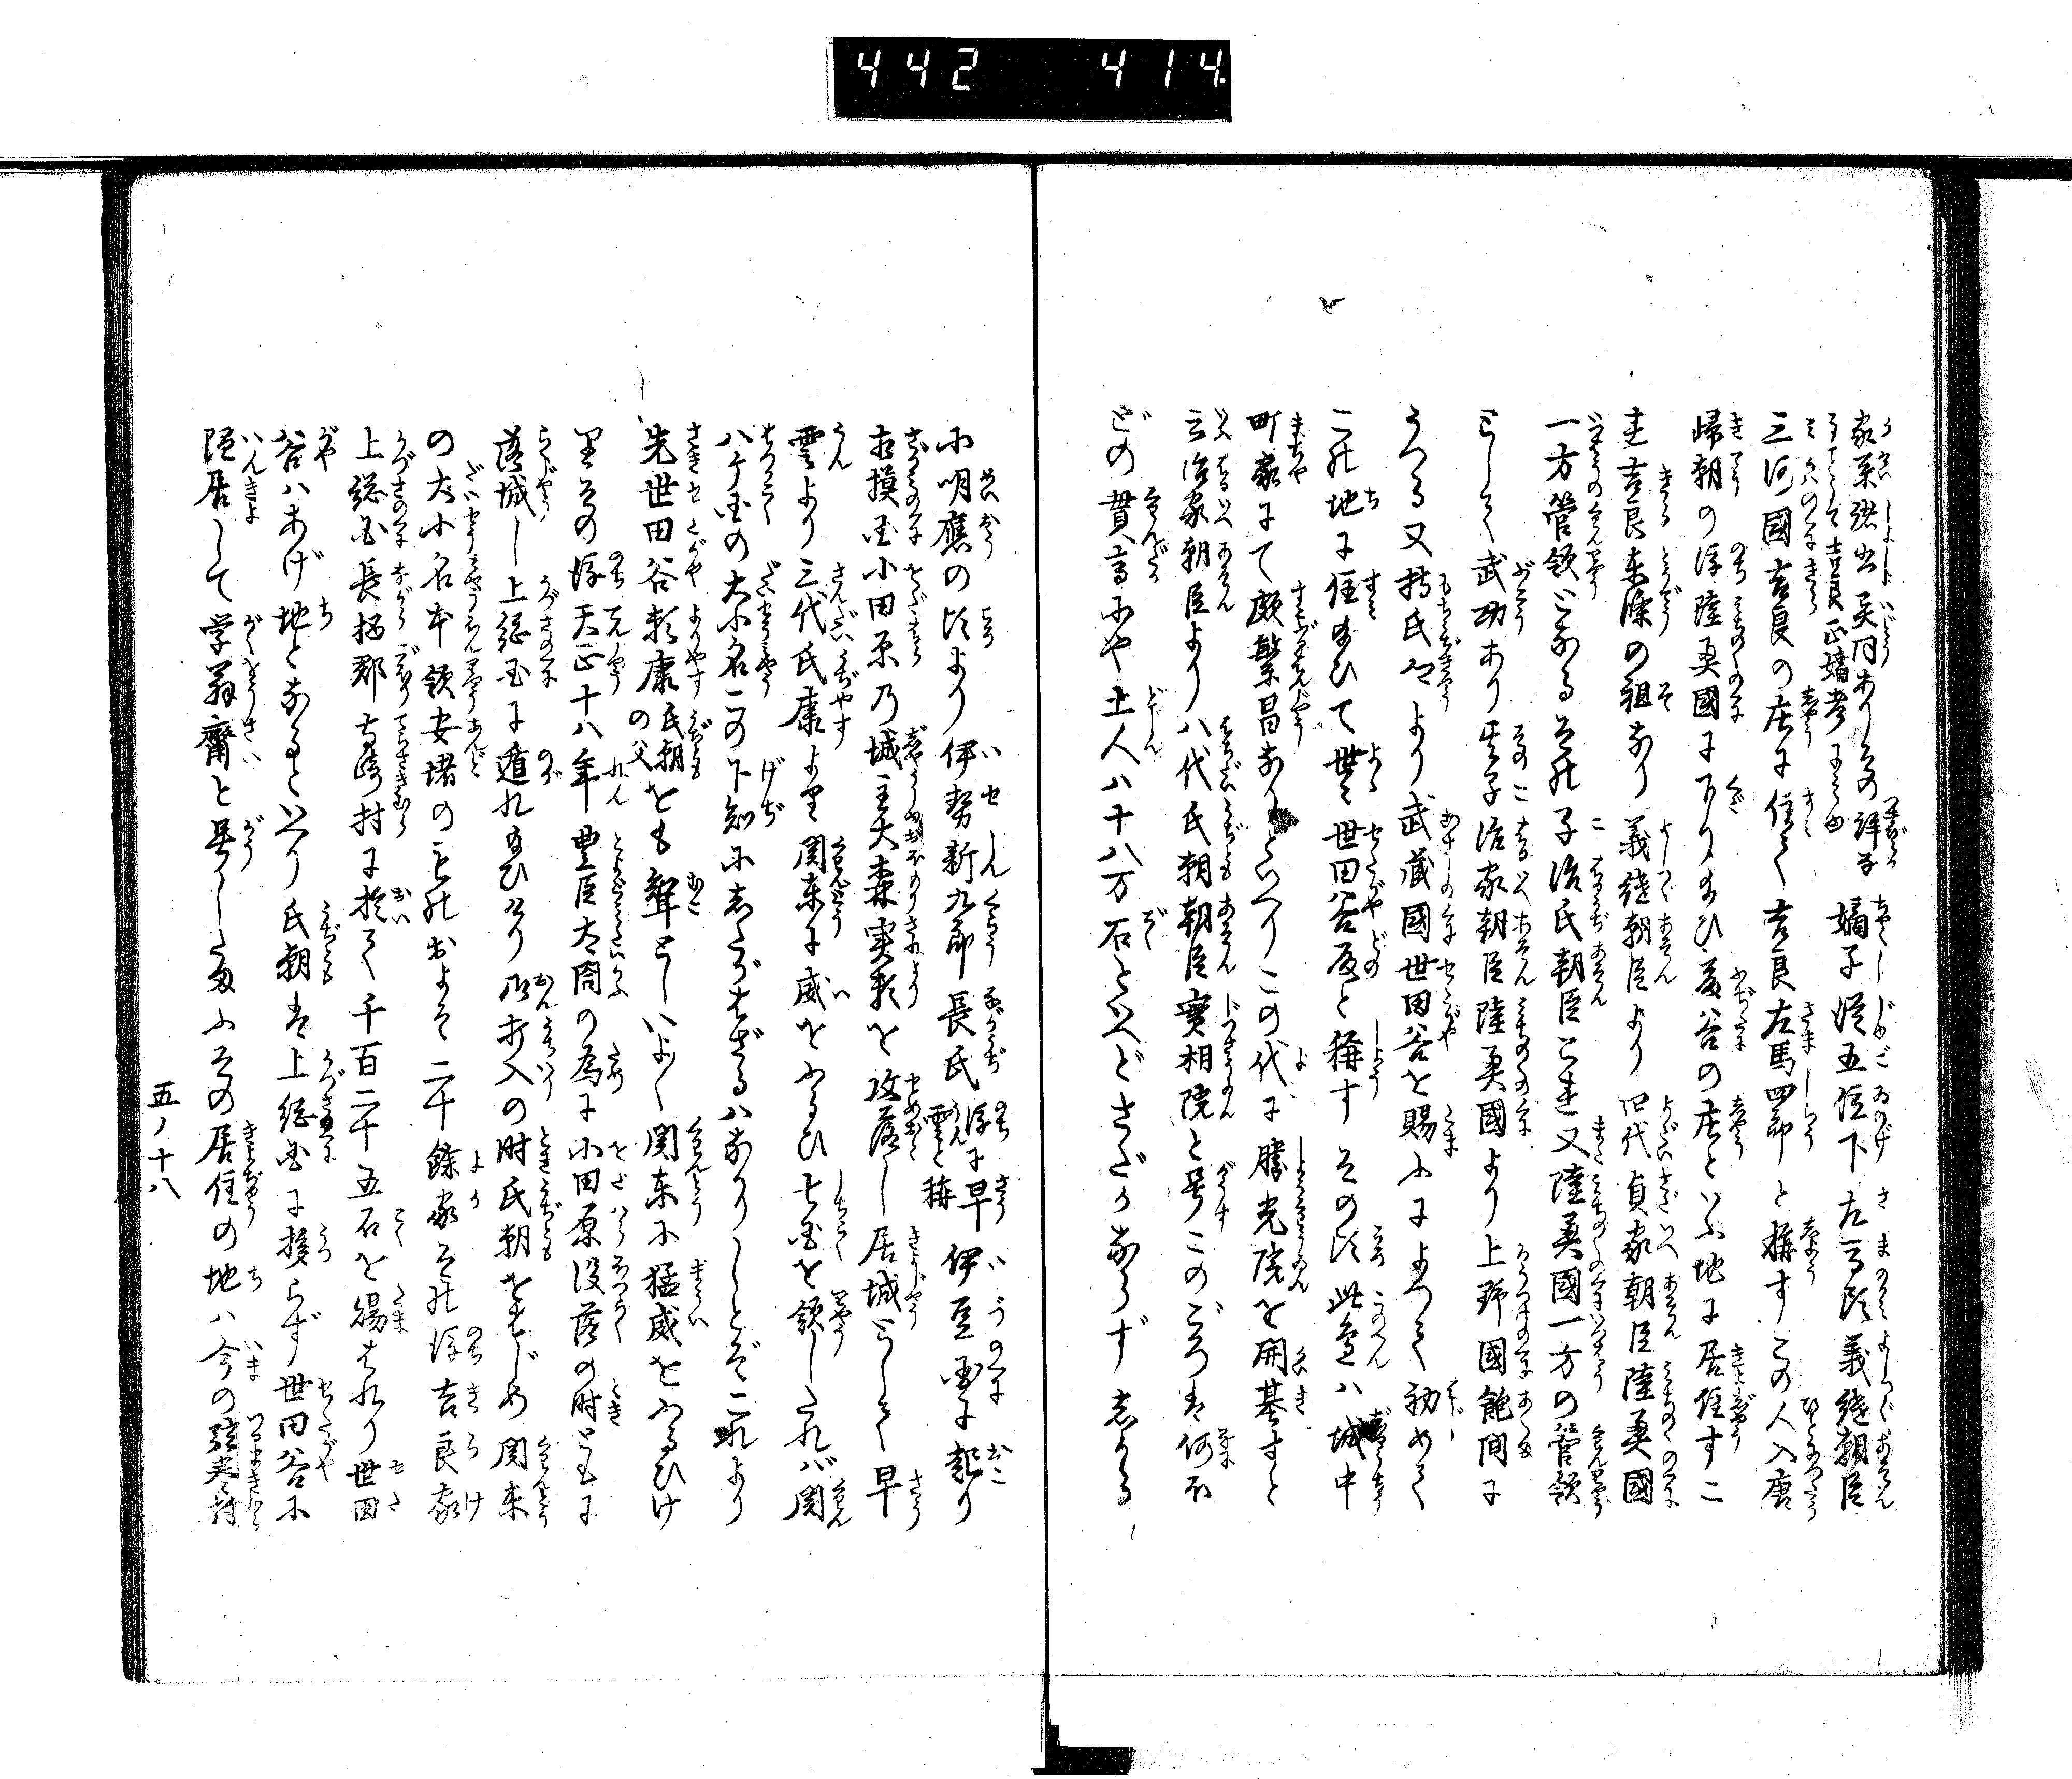 442 414
家系諸書異同ありその詳子嫡子従五位下左馬頭義継朝臣
三河國吉良の庄に住て吉良左馬四郎と称すこの人入唐
歸朝の後陸奥國に下り給ひ の庄といふ地に居住すこ
れ吉良東條の祖なり義継朝臣より四代貞家朝臣陸奥國
一方管領となるその子治氏朝臣これ又陸奥國一方の管領
として武功あり其子治家朝臣陸奥國より上野國飽間に
うつる又持氏公より武蔵國世田谷を賜ふによつて初めて
この地に住給ひて世々世田谷殿と称すその頃此邊ハ城中
町家にて頗繁昌なりといへりこの代に勝光院を開基すと
云治家朝臣より八代氏朝朝臣實相院と号このごろは何ほ
どの貫高にや土人八十八万石といへどさだかならずしかる
に明應の頃より伊勢新九郎長氏後に早雲と称伊豆国に起り
相摸国小田原の城主大森実頼を攻落し居城として早
雲より三代氏康に至関東に威をふるひ七国を領したれバ関
八ケ国の大小名この下知にしたがはざるハなかりしとぞこれより
先世田谷頼康氏朝の父をも聟としいよ〳〵関東に猛威をふるひけ
るその後天正十八年豊臣太閤の為に小田原没落の時ともに
落城し上総国に遁れ給ひけり御打入の時氏朝をはじめ関東
の大小名本領安堵のものおよそ二十餘家その後吉良家
上総国長柄郡寺崎村に於て千百二十五石を賜はれり世田
谷ハあげ地となるといへり氏朝は上総国に移らず世田谷に
隠居して学翁齋と号したまふその居住の地ハ今の弦巻村
五ノ十八